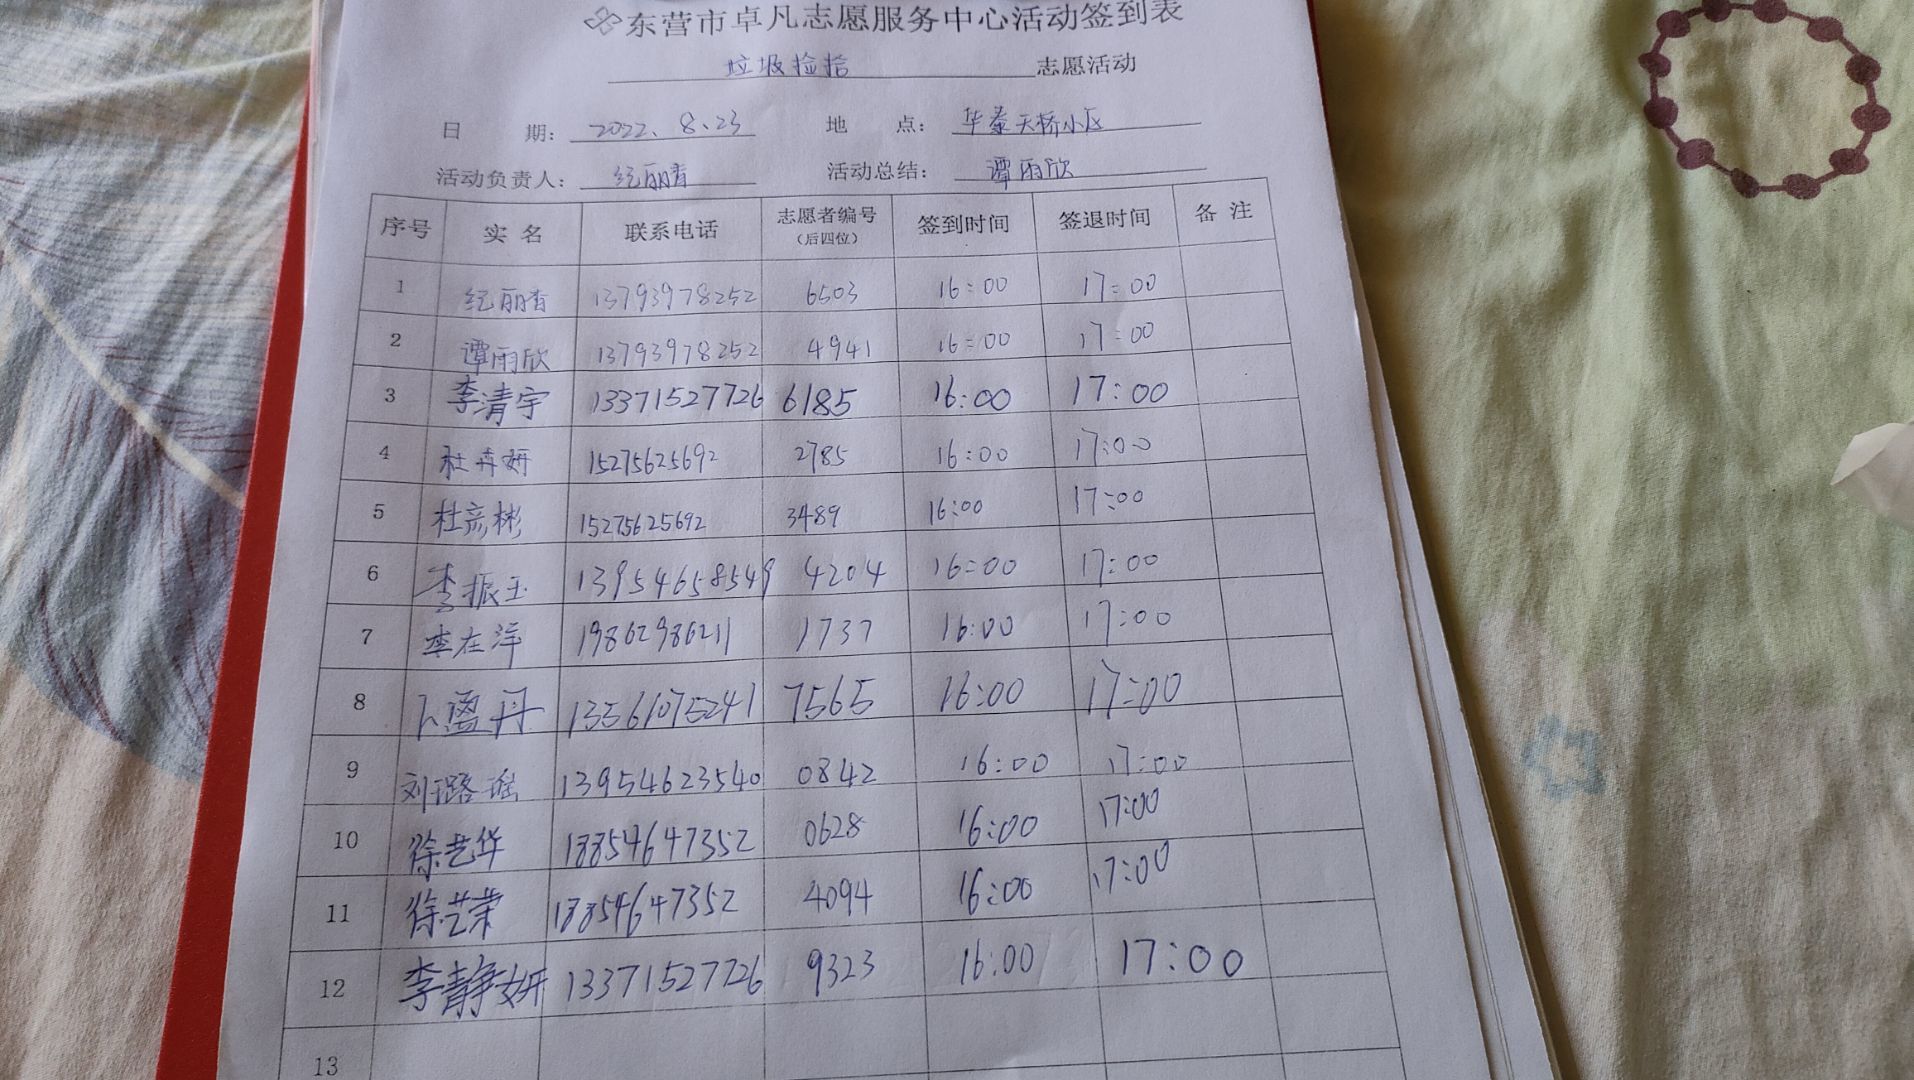 东营市卓凡志愿服务中心活动签到表
垃圾捡拾 志愿活动
日 期: 2022、8、23 地 点: 华泰天桥小区
活动负责人: 纪丽香 活动总结: 谭雨欣
序号 实名 联系电话 志愿者编号(后四位) 签到时间 签退时间 备注
1 纪丽香 13793978252 6503 16:00 17:00
2 谭雨欣 13793978252 4941 16:00 17:00
3 李清宇 13371527726 6185 16:00 17:00
4 杜卉妍 15275625692 2785 16:00 17:00
5 杜彦彬 15275625692 3489 16:00 17:00
6 李振玉 13954658549 4204 16:00 17:00
7 李在洋 19862986211 1737 16:00 17:00
8 卜盈丹 13561075241 7565 16:00 17:00
9 刘璐瑶 13954623540 0842 16:00 17:00
10 徐艺华 18854647352 0628 16:00 17:00
11 徐艺荣 18854647352 4094 16:00 17:00
12 李静妍 13371527726 9323 16:00 17:00
13